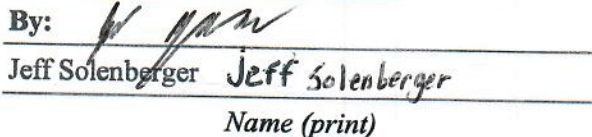 By:
Jeff Solenberger Jeff Solenberger
Name (print)